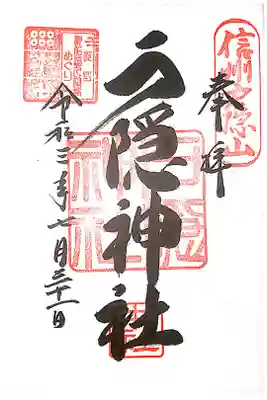 奉拝
信州戸隠山
戸隠神社
令和三年七月三十一日